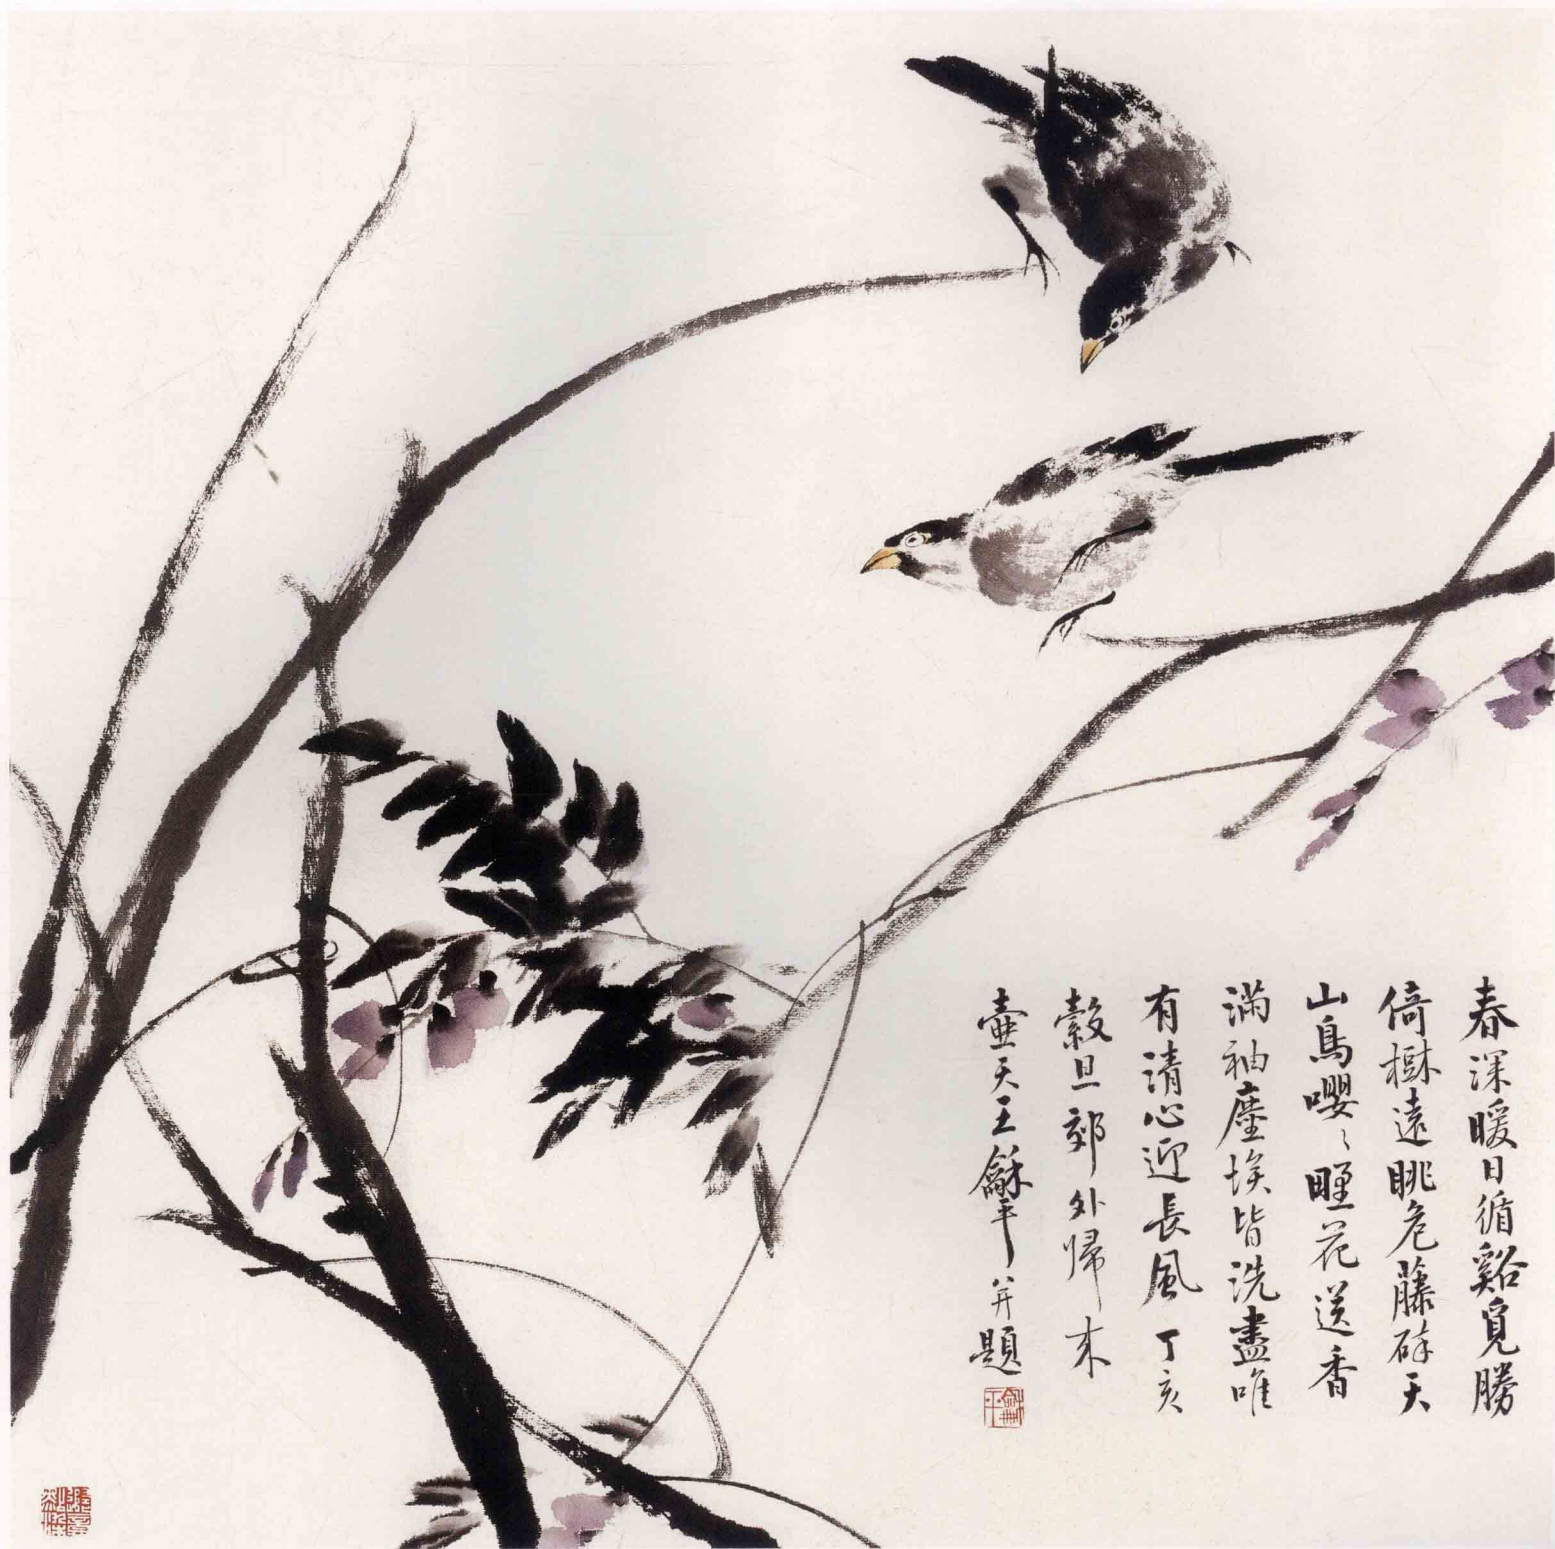 春深暖日循谿覓勝
倚樹遠眺危藤碎天
山鳥嚶〻野花送香
滿袖塵埃皆洗盡唯
有清心迎長風丁亥
穀旦郊外帰來
壺天王龢平并題
龢平